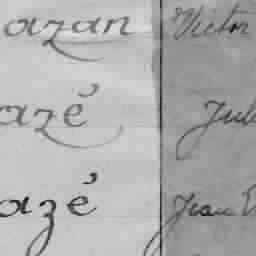 azan Victor
azé Jul
azé Jean